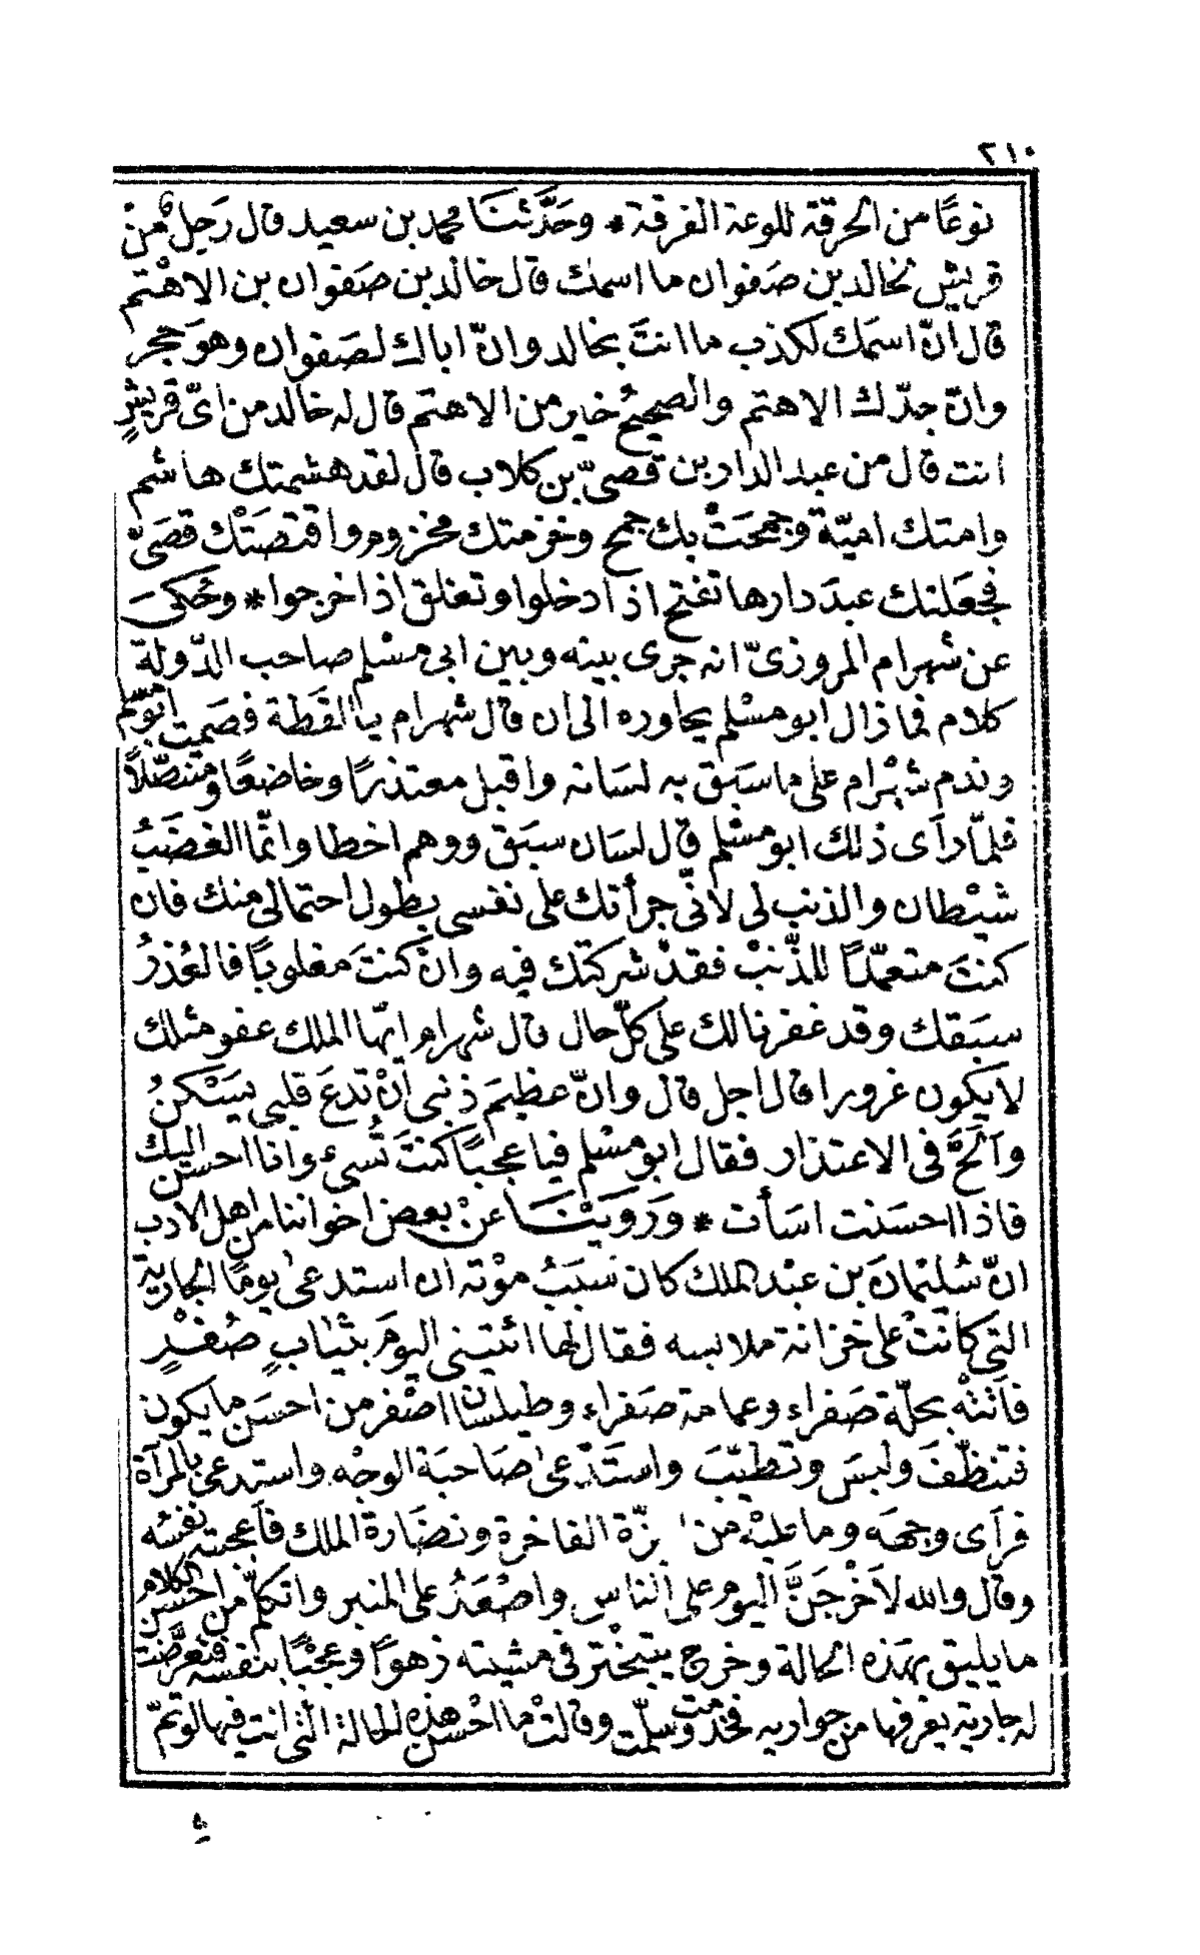 ٢١٠
نوعًا من الحرقة للوعة الفرقة * وحَدَّثنَا محمد بن سعيد قال رَجل من
قريش لخالد بن صَفوان ما اسمك قال خالد بن صَفوان بن الاهْتم
قال انّ اسمَك لكذب ما انتَ بخالد وانّ اباك لصَفوان وهوَ حجر
وانّ جدّك الاهتم والصحيحُ خير من الاهتم قال له خالد من اىّ قريشٍ
انت قال من عبد الدار بن قصىّ بن كلاب قال لقد هشمتك هاشم
وامتك اميّة وجمحَتْ بك جمح وخزمتك مخزوم واقتصَتْك قصَىّ
فجعَلتك عبدَ دارها تفتح اذا دخلوا وتغلق اذا خرجوا * وحُكىَ
عن شهرام المروزىّ انه جرى بينه وبين ابى مسْلم صاحب الدّولة
كلام فما زال ابو مسْلم يحاوره الى ان قال شهرام يا لقَطة فصَمت ابو مسلم
وندم شهْرام على ما سَبَق به لسَانه واقبل معتذرًا وخاضعًا ومتنصّلاً
فلمّا رآى ذلك ابو مسْلم قال لسَان سبَق ووهم اخطا وانّما الغضَبُ
شيْطان والذنب لى لانّى جرأتك على نفسى بطول احتمالى منك فان
كنتَ متعمّدًا للذّنبْ فقدْ شركتك فيه وانْ كنتَ مغلوبًا فالعُذرُ
سبَقك وقد غفرنا لك على كلّ حال قال شهرام ايّها الملك عفو مثلك
لا يكون غرورا قال اجل قال وانّ عظيمَ ذنبى انْ تدعَ قلبى يَسْكنُ
وآلحَّ فى الاعتذار فقال ابو مسْلم فيا عجبًا كنتَ تُسىء وانا احسن اليك
فاذا احسَنت اسَأت * وَرَوَيْنَا عنْ بعض اخواننا من اهل الادب
انّ سُليمَان بن عبْد الملك كان سَبَبُ موْته ان استدعى يومًا الجارية
التى كانتْ على خزانة ملابسه فقال لها ائتينى اليومَ بثيَابٍ صُفْرٍ
فآتتْه بحلّة صَفراء وعمامة صَفراء وطيلسان اصْفر من احسَن ما يكون
فتنظّفَ ولبسَ وتطيّبَ واستَدْعى صَاحبَة الوجْه واستدعى بالمرآة
فرآى وجهَه وما عليْه من بزّة الفاخرة ونضَارة الملك فآعجبته نفسُه
وقال والله لاَخْرجَنَّ اليوم على الناس واصْعَدُ على المنبر واتكلّم من احسن الكلام
ما يليق بهَذه الحالة وخرج يتبخْتر فى مشيته زهوًا وعجْبًا بنفسه فتعرّضَت
له جارية يعرفها من جواريه فخدمت وسلّمت وقالتْ ما احْسنَ هذه الحالة التى انت فيها لو تمّ